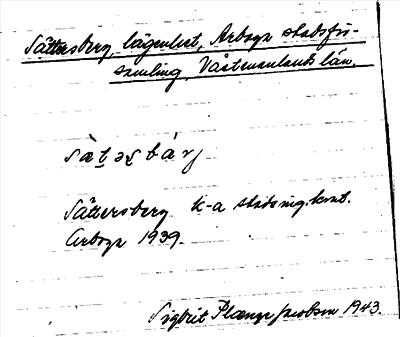 Sättersberg, lägenhet, Arboga stadsför-
samling, Västmanlands län.
sæ̀tərbárj
Sättersberg k-a stadsing. kont.
Arboga 1939.
Sigbrit Plænge Jacobson 1943.